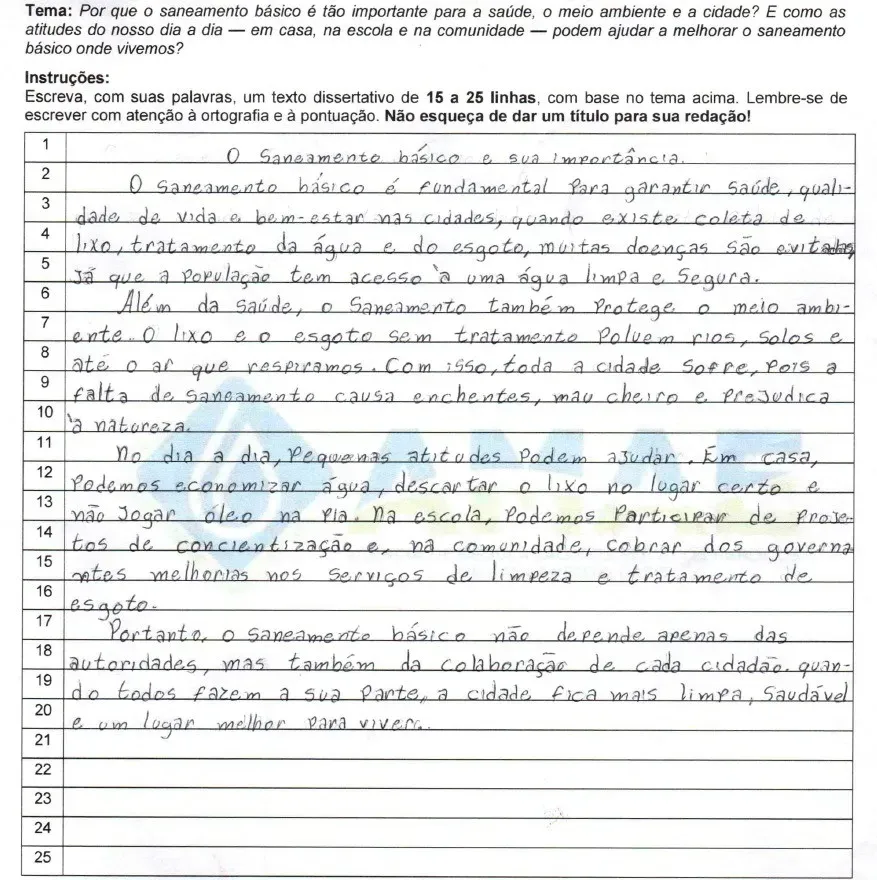 Tema: Por que o saneamento básico é tão importante para a saúde, o meio ambiente e a cidade? E como as
atitudes do nosso dia a dia — em casa, na escola e na comunidade — podem ajudar a melhorar o saneamento
básico onde vivemos?
Instruções:
Escreva, com suas palavras, um texto dissertativo de 15 a 25 linhas, com base no tema acima. Lembre-se de
escrever com atenção à ortografia e à pontuação. Não esqueça de dar um título para sua redação!
1 O Saneamento básico e sua importância.
2 O saneamento básico é fundamental para garantir saúde, quali-
3 dade de vida e bem-estar nas cidades, quando existe coleta de
4 lixo, tratamento da água e do esgoto, muitas doenças são evitadas,
5 Já que a população tem acesso à uma água limpa e segura.
6 Além da saúde, o saneamento também protege o meio ambi-
7 ente. O lixo e o esgoto sem tratamento poluem rios, solos e
8 até o ar que respiramos. Com isso, toda a cidade sofre, pois a
9 falta de saneamento causa enchentes, mau cheiro e prejudica
10 à natureza.
11 No dia a dia, pequenas atitudes podem ajudar. Em casa,
12 Podemos economizar água, descartar o lixo no lugar certo e
13 não jogar óleo na pia. Na escola, podemos participar de proje-
14 tos de concientização e, na comunidade, cobrar dos governa
15 ntes melhorias nos serviços de limpeza e tratamento de
16 esgoto.
17 Portanto, o saneamento básico não depende apenas das
18 autoridades, mas também da colaboração de cada cidadão. quan-
19 do todos fazem a sua parte, a cidade fica mais limpa, saudável
20 e um lugar melhor para viver.
21
22
23
24
25
AMAE